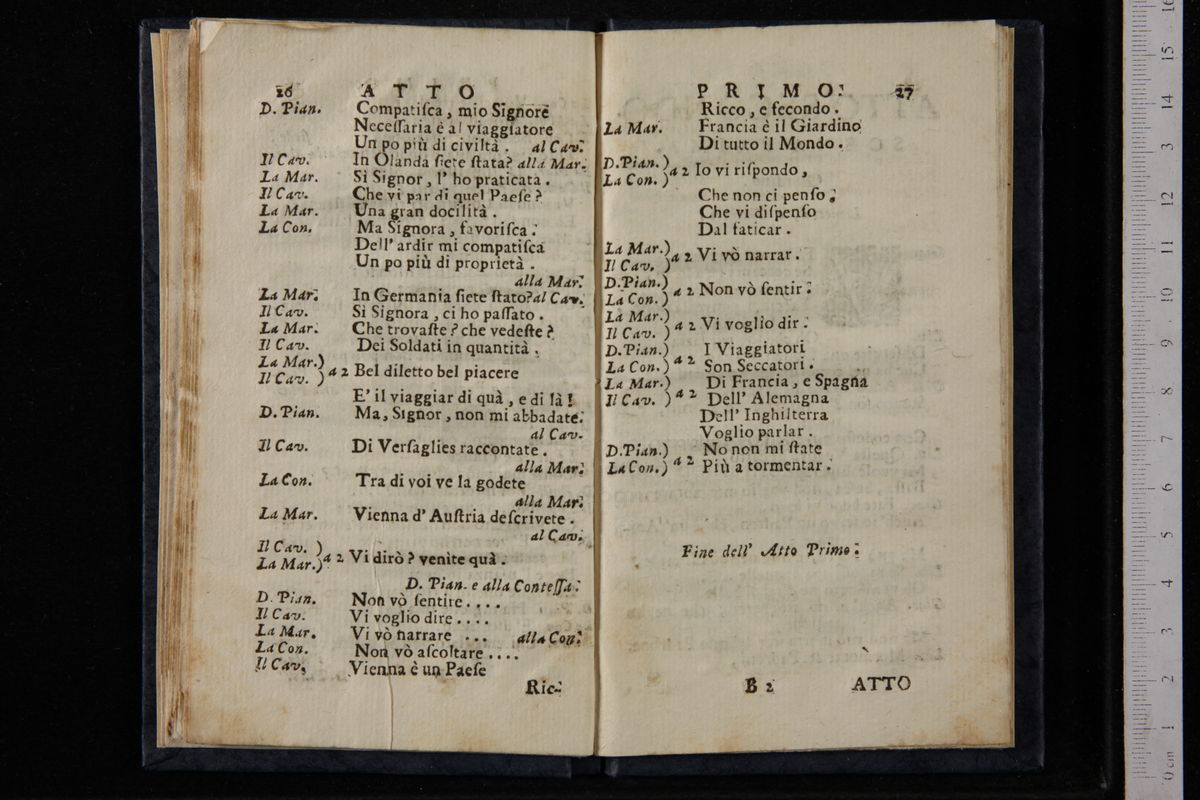 26 ATTO
D. Pian. Compatiſca, mio Signore
Neceſſaria è al viaggiatore
Un po più di civiltà. al Cav.
Il Cav. In Olanda ſiete ſtata? alla Mar.
La Mar. Sì Signor, l' ho praticata.
Il Cav. Che vi par di quel Paeſe?
La Mar. Una gran docilità.
La Con. Ma Signora, favoriſca.
Dell' ardir mi compatiſca
Un po più di proprietà.
alla Mar.
La Mar. In Germania ſiete ſtato? al Cav.
Il Cav. Sì Signora, ci ho paſſato.
La Mar. Che trovaſte? che vedeſte?
Il Cav. Dei Soldati in quantità.
La Mar.)
Il Cav. ) a 2 Bel diletto bel piacere
E' il viaggiar di quà, e di là!
D. Pian. Ma, Signor, non mi abbadate.
al Cav.
Il Cav. Di Verſaglies raccontate.
alla Mar.
La Con. Tra di voi ve la godete
alla Mar.
La Mar. Vienna d' Auſtria deſcrivete.
al Cav.
Il Cav. )
La Mar.) a 2 Vi dirò? venite quà.
D. Pian. e alla Conteſſa.
D. Pian. Non vò ſentire....
Il Cav. Vi voglio dire....
La Mar. Vi vò narrare ... alla Con.
La Con. Non vò aſcoltare....
Il Cav. Vienna è un Paeſe
Ric-
PRIMO. 27
Ricco, e fecondo.
La Mar. Francia è il Giardino
Di tutto il Mondo.
D. Pian. )
La Con. ) a 2 Io vi riſpondo,
Che non ci penſo;
Che vi diſpenſo
Dal faticar.
La Mar.)
Il Cav. ) a 2 Vi vò narrar.
D. Pian.)
La Con.) a 2 Non vò ſentir.
La Mar.)
Il Cav. ) a 2 Vi voglio dir.
D. Pian.) I Viaggiatori
La Con.) a 2 Son Seccatori.
La Mar.) Di Francia, e Spagna
Il Cav. ) a 2 Dell' Alemagna
Dell' Inghilterra
Voglio parlar.
D. Pian.) No non mi ſtate
La Con.) a 2 Più a tormentar.
Fine dell' Atto Primo.
B 2 ATTO
0 cm 1 2 3 4 5 6 7 8 9 10 11 12 13 14 15 16